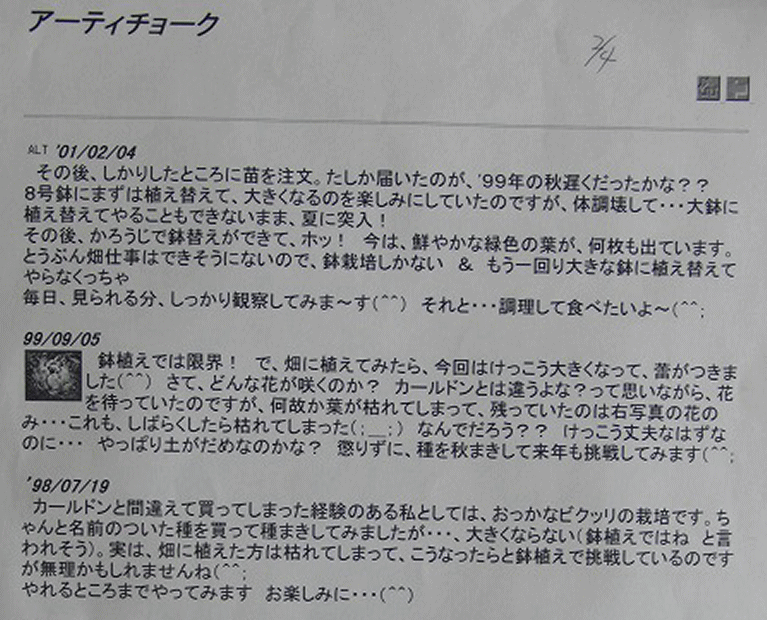 アーティチョーク
2/4
ALT '01/02/04
その後、しかりしたところに苗を注文。たしか届いたのが、'99年の秋遅くだったかな？？
8号鉢にまずは植え替えて、大きくなるのを楽しみにしていたのですが、体調壊して・・・大鉢に
植え替えてやることもできないまま、夏に突入！
その後、かろうじで鉢替えができて、ホッ！　今は、鮮やかな緑色の葉が、何枚も出ています。
とうぶん畑仕事はできそうにないので、鉢栽培しかない　＆　もう一回り大きな鉢に植え替えて
やらなくっちゃ
毎日、見られる分、しっかり観察してみま～す(^^)　それと・・・調理して食べたいよ～(^^;
99/09/05
鉢植えでは限界！　で、畑に植えてみたら、今回はけっこう大きくなって、蕾がつきま
した(^^)　さて、どんな花が咲くのか？　カールドンとは違うよな？って思いながら、花
を待っていたのですが、何故か葉が枯れてしまって、残っていたのは右写真の花の
み・・・これも、しばらくしたら枯れてしまった(;__;)　なんでだろう？？　けっこう丈夫なはずな
のに・・・　やっぱり土がだめなのかな？　懲りずに、種を秋まきして来年も挑戦してみます(^^;
'98/07/19
カールドンと間違えて買ってしまった経験のある私としては、おっかなビクッリの栽培です。ち
ゃんと名前のついた種を買って種まきしてみましたが・・・、大きくならない(鉢植えではね　と言
われそう)。実は、畑に植えた方は枯れてしまって、こうなったらと鉢植えで挑戦しているのです
が無理かもしれませんね(^^;
やれるところまでやってみます　お楽しみに・・・(^^)